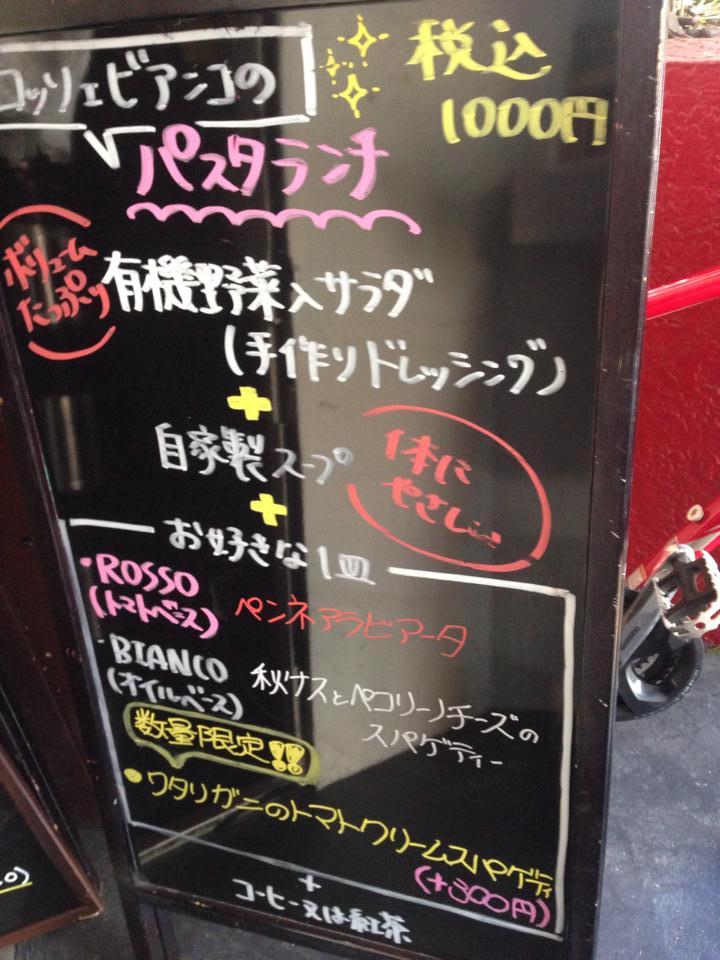 ロッソェビアンコの
税込
1000円
パスタランチ
ボリューム
たっぷり
有機野菜入サラダ
(手作りドレッシング)
+
自家製スープ
体に
やさしい
+
お好きな1皿
・ROSSO
(トマトベース)
ペンネアラビアータ
・BIANCO
(オイルベース)
秋ナスとペコリーノチーズの
スパゲティー
数量限定!!
・ワタリガニのトマトクリームスパゲティ
(+300円)
+
コーヒー又は紅茶